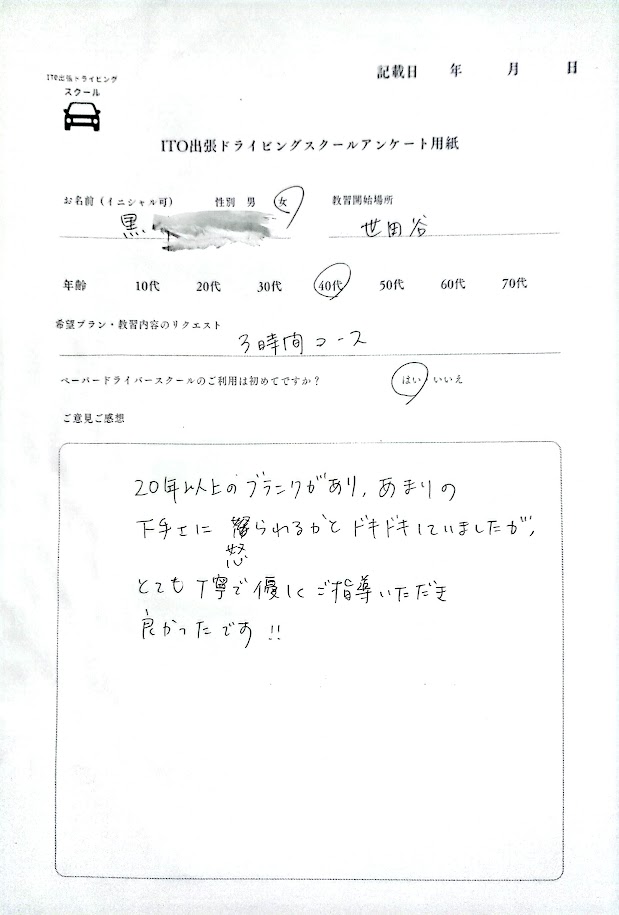 ITO出張ドライビング
スクール
記載日 年 月 日
ITO出張ドライビングスクールアンケート用紙
お名前（イニシャル可） 性別 男 女 教習開始場所
黒. 世田谷
年齢 10代 20代 30代 40代 50代 60代 70代
希望プラン・教習内容のリクエスト
3時間コース
ペーパードライバースクールのご利用は初めてですか？ はい・いいえ
ご意見ご感想
20年以上のブランクがあり、あまりの
下手エに られるかとドキドキしていましたが、
怒
とても丁寧で優しくご指導いただき
良かったです!!